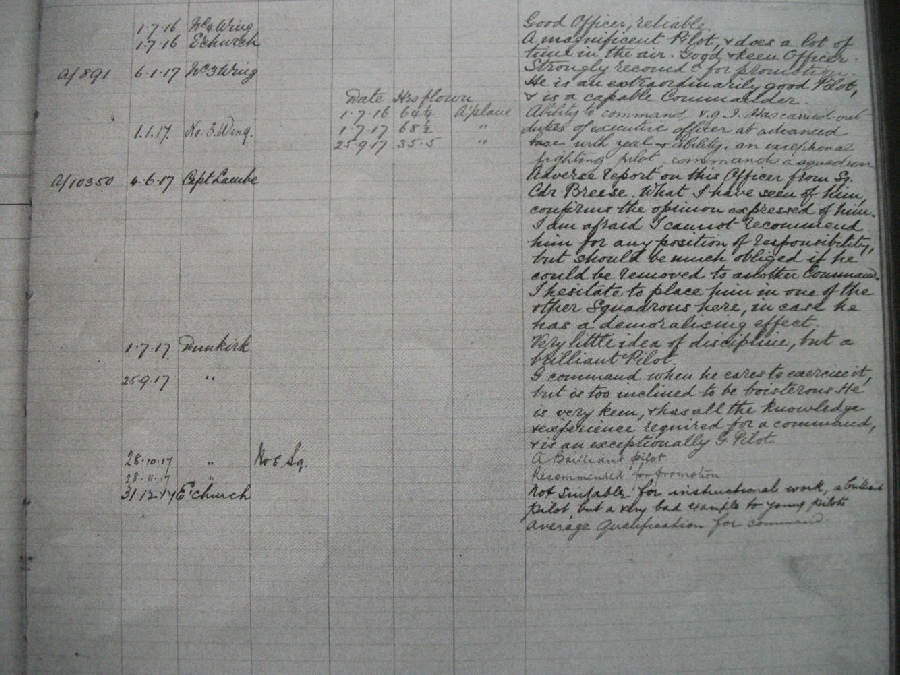 1.7.16 No 4 Wing Good Officer, reliable
1.7.16 Echurch A magnificent Pilot, & does a lot of
time in the air. Good & keen Officer.
A/891 6.1.17 No 3 Wing Strongly recomd for promotion
He is an extraordinarily good Pilot,
& is a capable Commander.
Date Hrs flown
1.7.16 64½ A'plane Ability to command v.g. I. Has carried out
1.1.17. No. 3 Wing. 1.7.17 68½ " duties of executive officer at advanced
25 9 17 35.5 " base with zeal & ability. an exceptional
fighting pilot, command a squadron
A/10350 4.6.17 Capt Lambe Adverse report on this Officer from Sq.
Cdr Breese. What I have seen of him,
confirms the opinion expressed of him.
I am afraid I cannot recommend
him for any position of responsibility,
but should be much obliged if he
could be removed to another Command.
I hesitate to place him in one of the
other Squadrons here, in case he
has a demoralising effect.
1.7.17 Dunkirk Very little idea of discipline, but a
brilliant Pilot
25 9.17 " I command when he cares to exercise it,
but is too inclined to be boisterous He
is very keen, & has all the knowledge
& experience required for a command,
& is an exceptionally G. Pilot.
28.10.17 " No 5 Sq. A Brilliant pilot
28.11.17 " Recommended for promotion
31.12.17 E'church Not suitable for instructional work, a brilliant
pilot but a very bad example to young pilots
average qualification for command